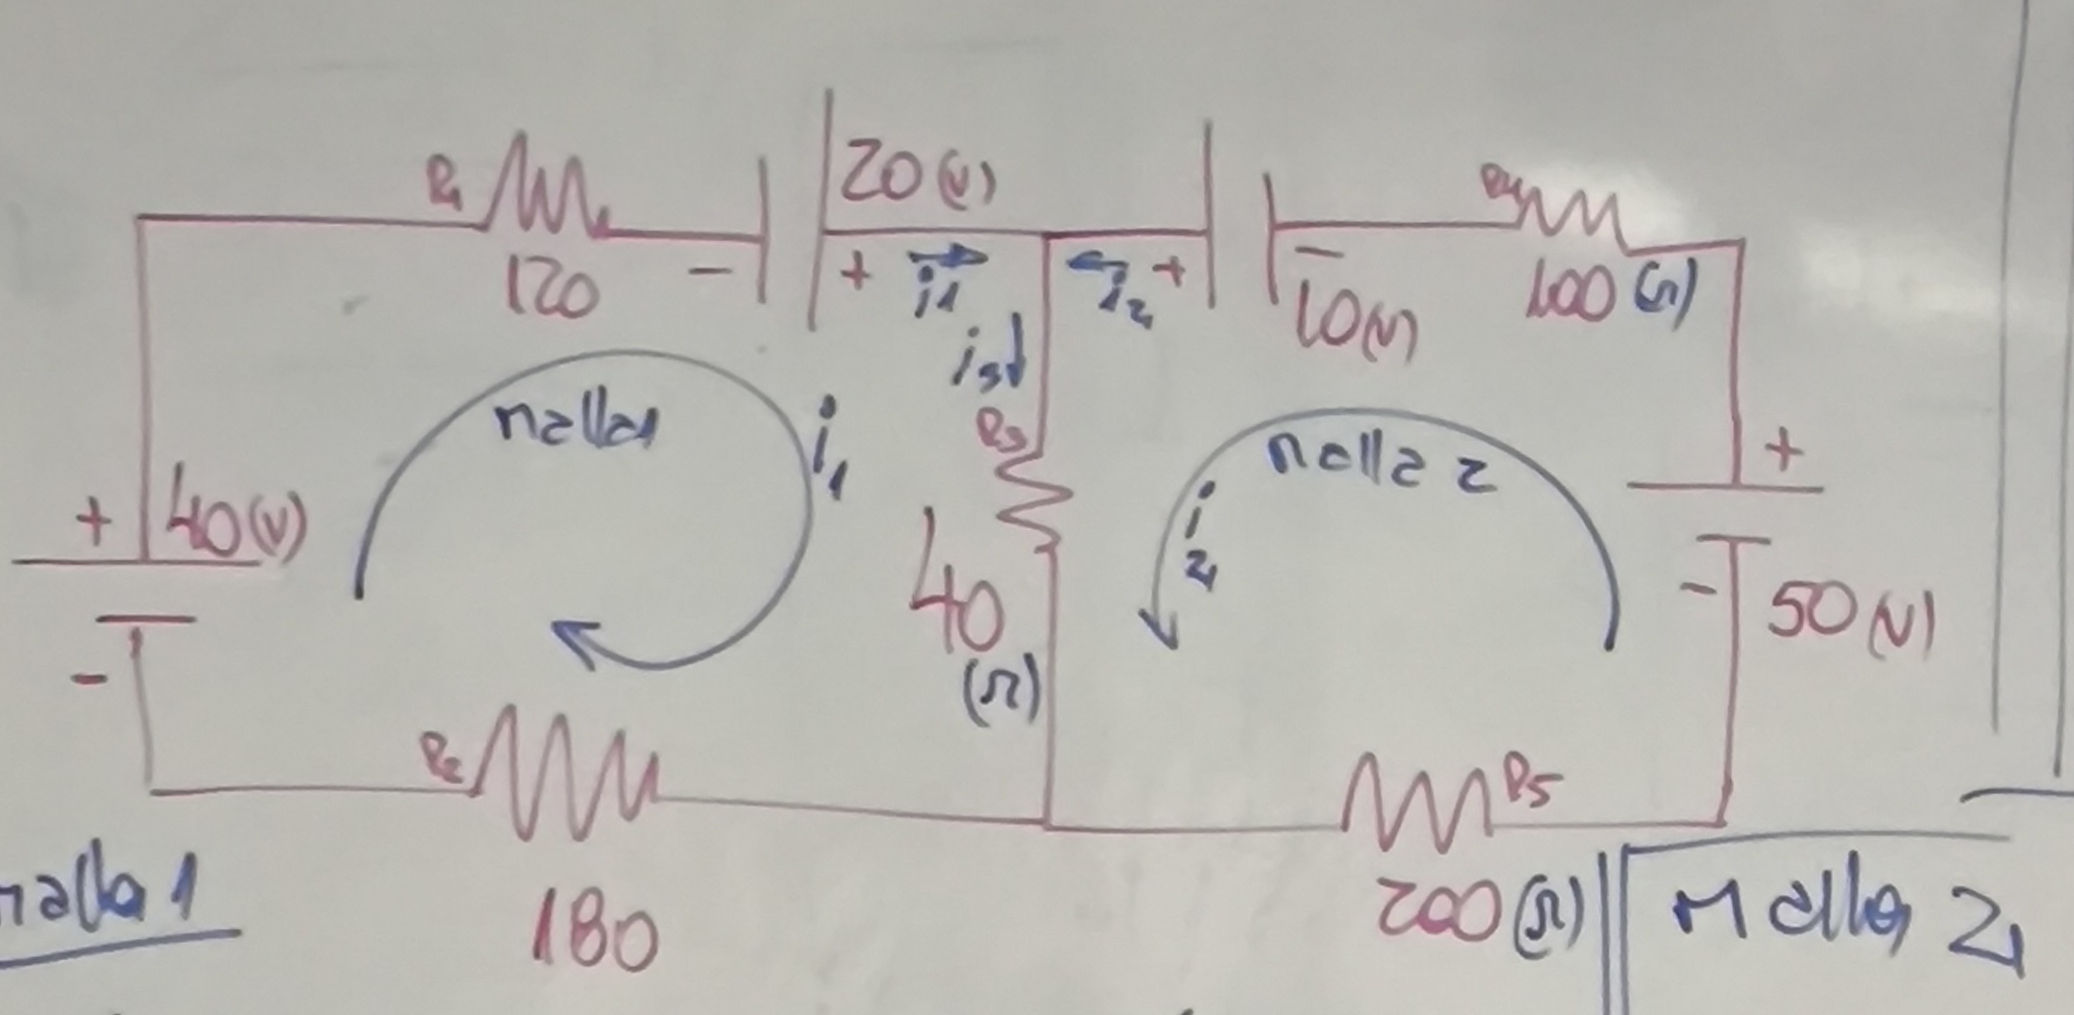 R1
120
-
20(v)
+
i1
i2
+
-
10(v)
R4
100(Ω)
i3
malla1
i1
R3
40
(Ω)
malla 2
i2
+
40(v)
-
+
-
50(v)
R2
180
R5
200(Ω)
malla 1
Malla 2